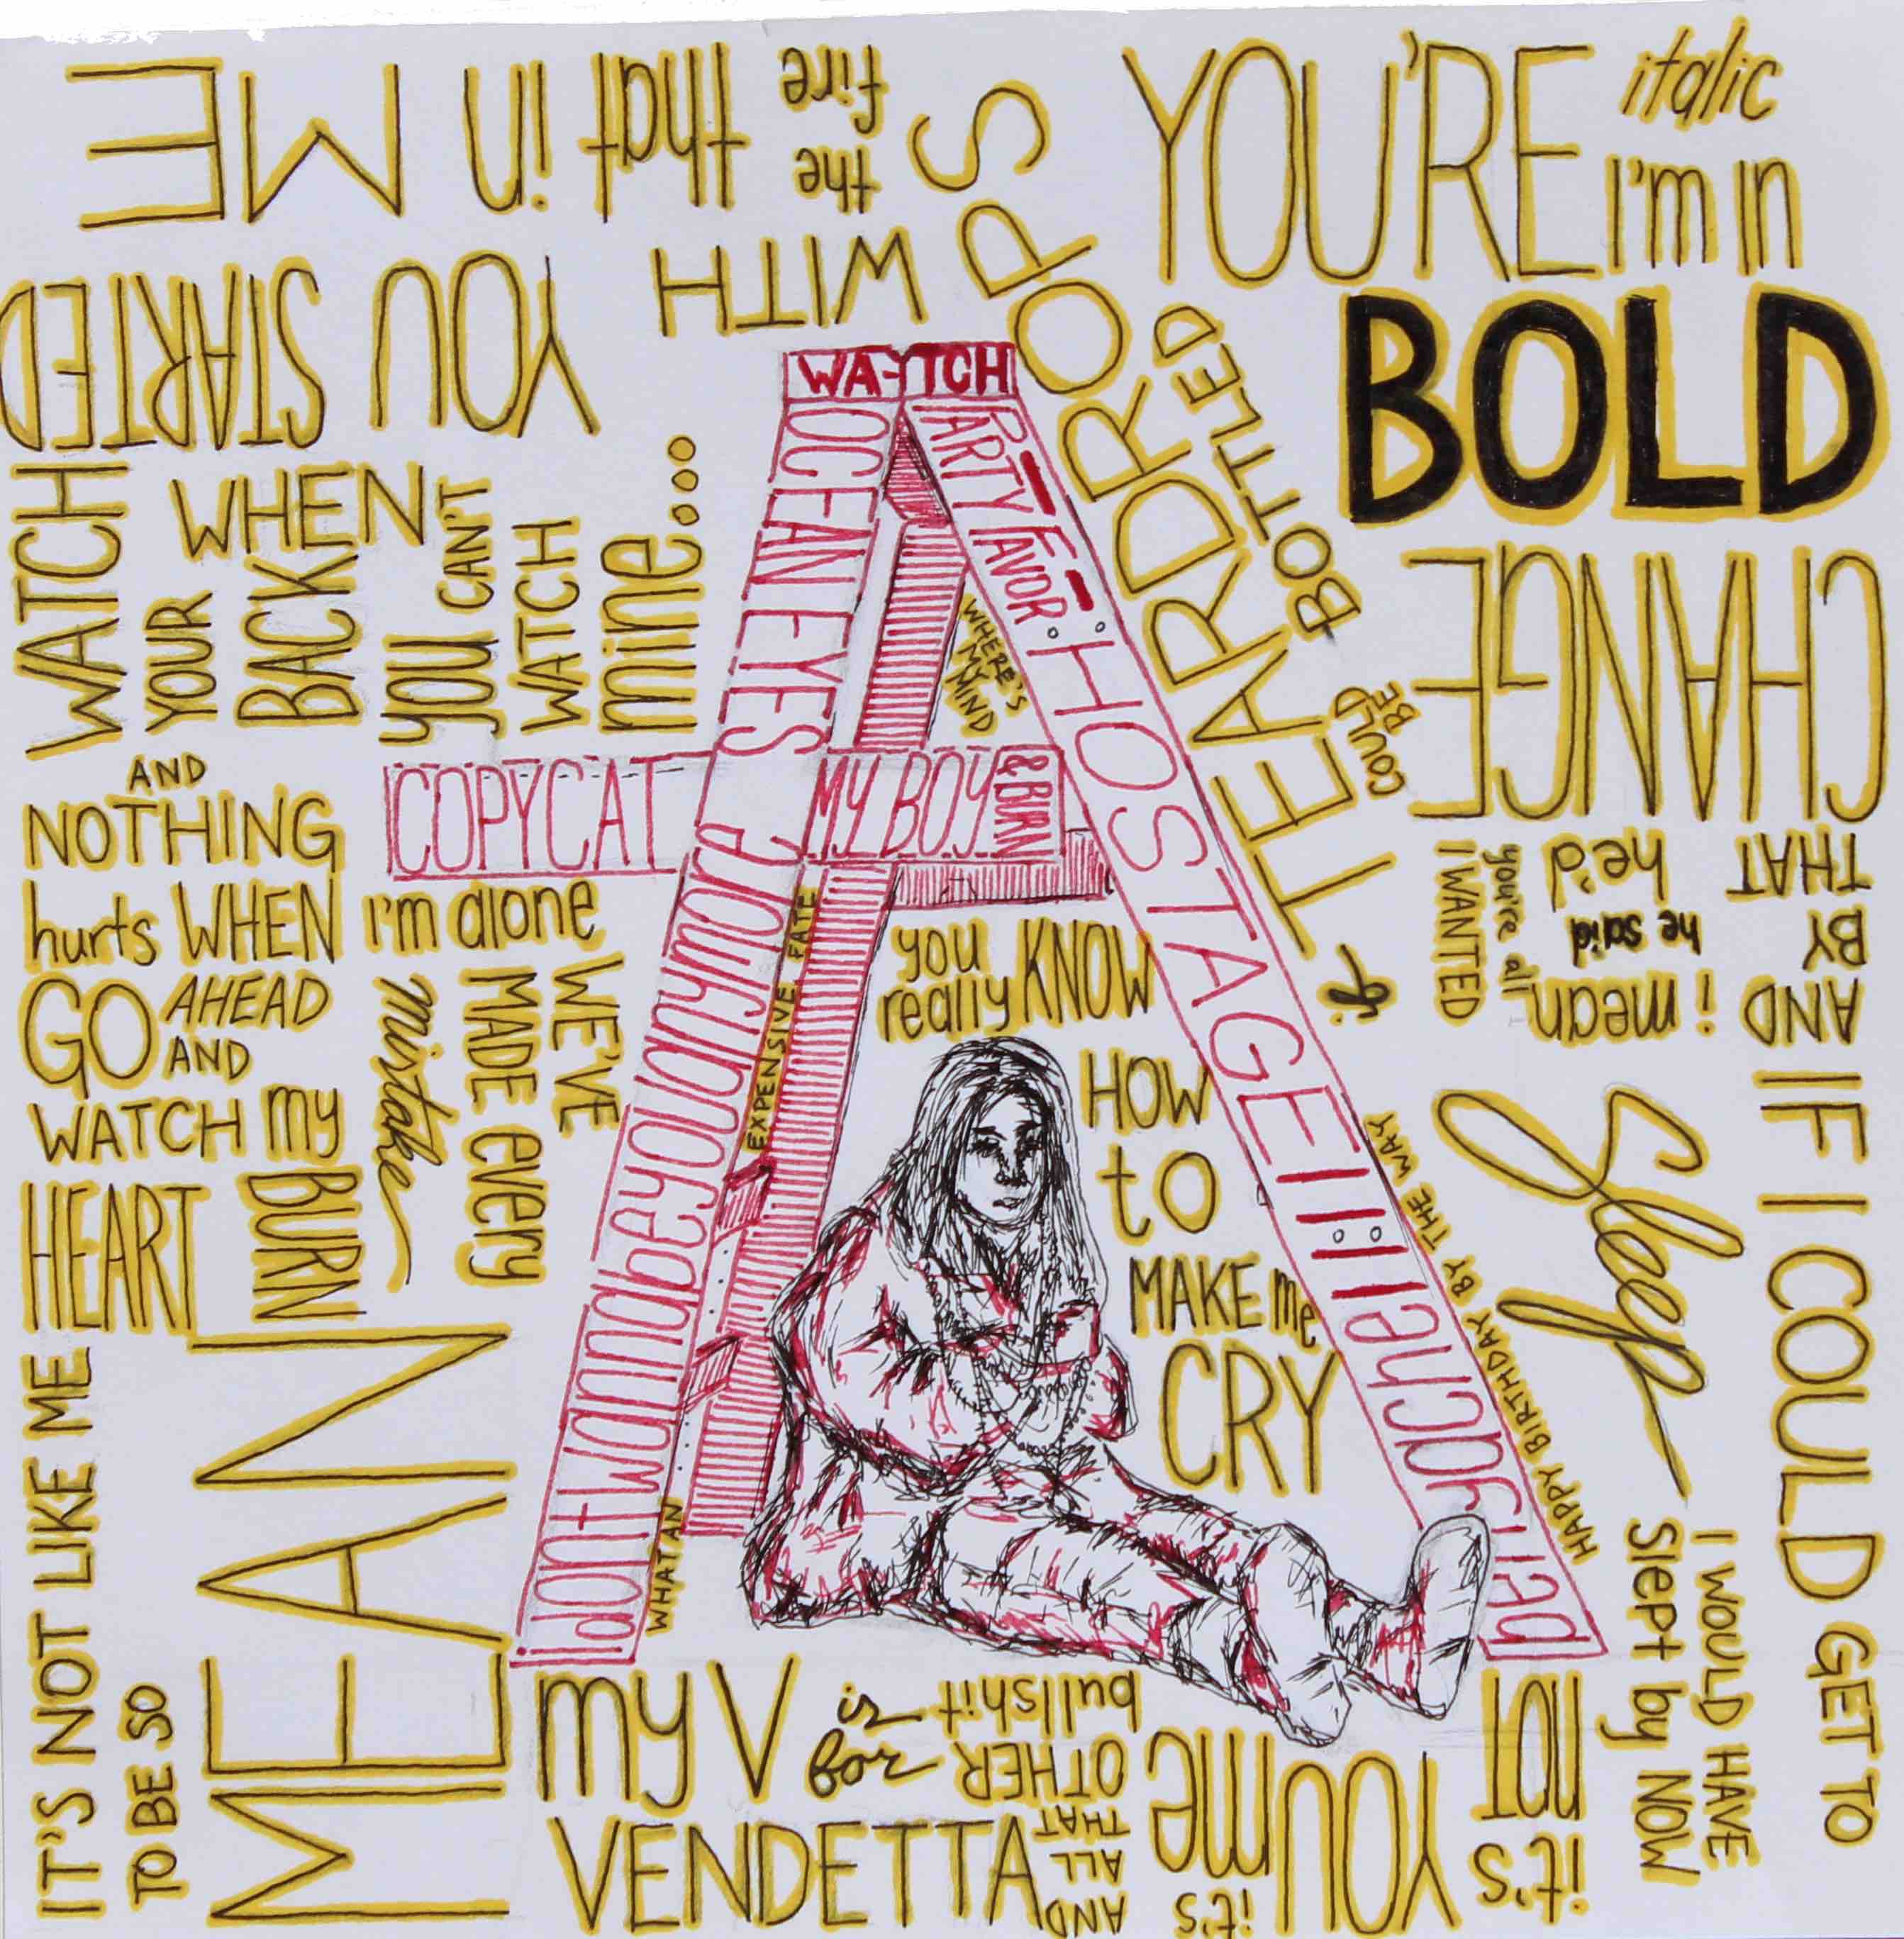 YOU'RE italic
I'm in
BOLD
WATCH
YOUR
BACK
WHEN
you CAN'T
WATCH
mine....
AND
NOTHING
hurts WHEN I'm alone
GO AHEAD
AND
WATCH my
HEART
BURN
WITH
the
fire
that
YOU STARTED
in ME
!
WE'VE
MADE every
mistake
IT'S NOT LIKE ME
TO BE SO
MEAN
my V is for
VENDETTA
it's
not
YOU
it's
me
AND
ALL
THAT
OTHER
bullshit
if
TEARDROPS
COULD
BE
BOTTLED
you
really KNOW
HOW
to
MAKE me
CRY
WHERE'S
MY
MIND
WHAT AN
EXPENSIVE FATE
HAPPY BIRTHDAY BY THE WAY
AND BY
THAT
i mean
he said
he'd
CHANGE
you're all
I WANTED
IF I COULD GET TO
Sleep
I WOULD HAVE
Slept by NOW
WA-TCH
OCEAN EYES
idontwannabeyouanymore
COPYCAT
MY BOY
& BURN
PARTY FAVOR
HOSTAGE
bellyache